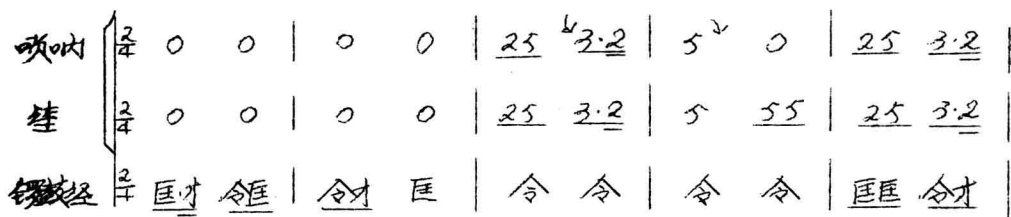 唢呐 2/4 0 0 | 0 0 | 25 3·2 | 5 0 | 25 3·2 |
2/4 0 0 | 0 0 | 25 3·2 | 5 55 | 25 3·2 |
锣鼓经 2/4 匡·才 令匡 | 令才 匡 | 令 令 | 令 令 | 匡匡 令才 |